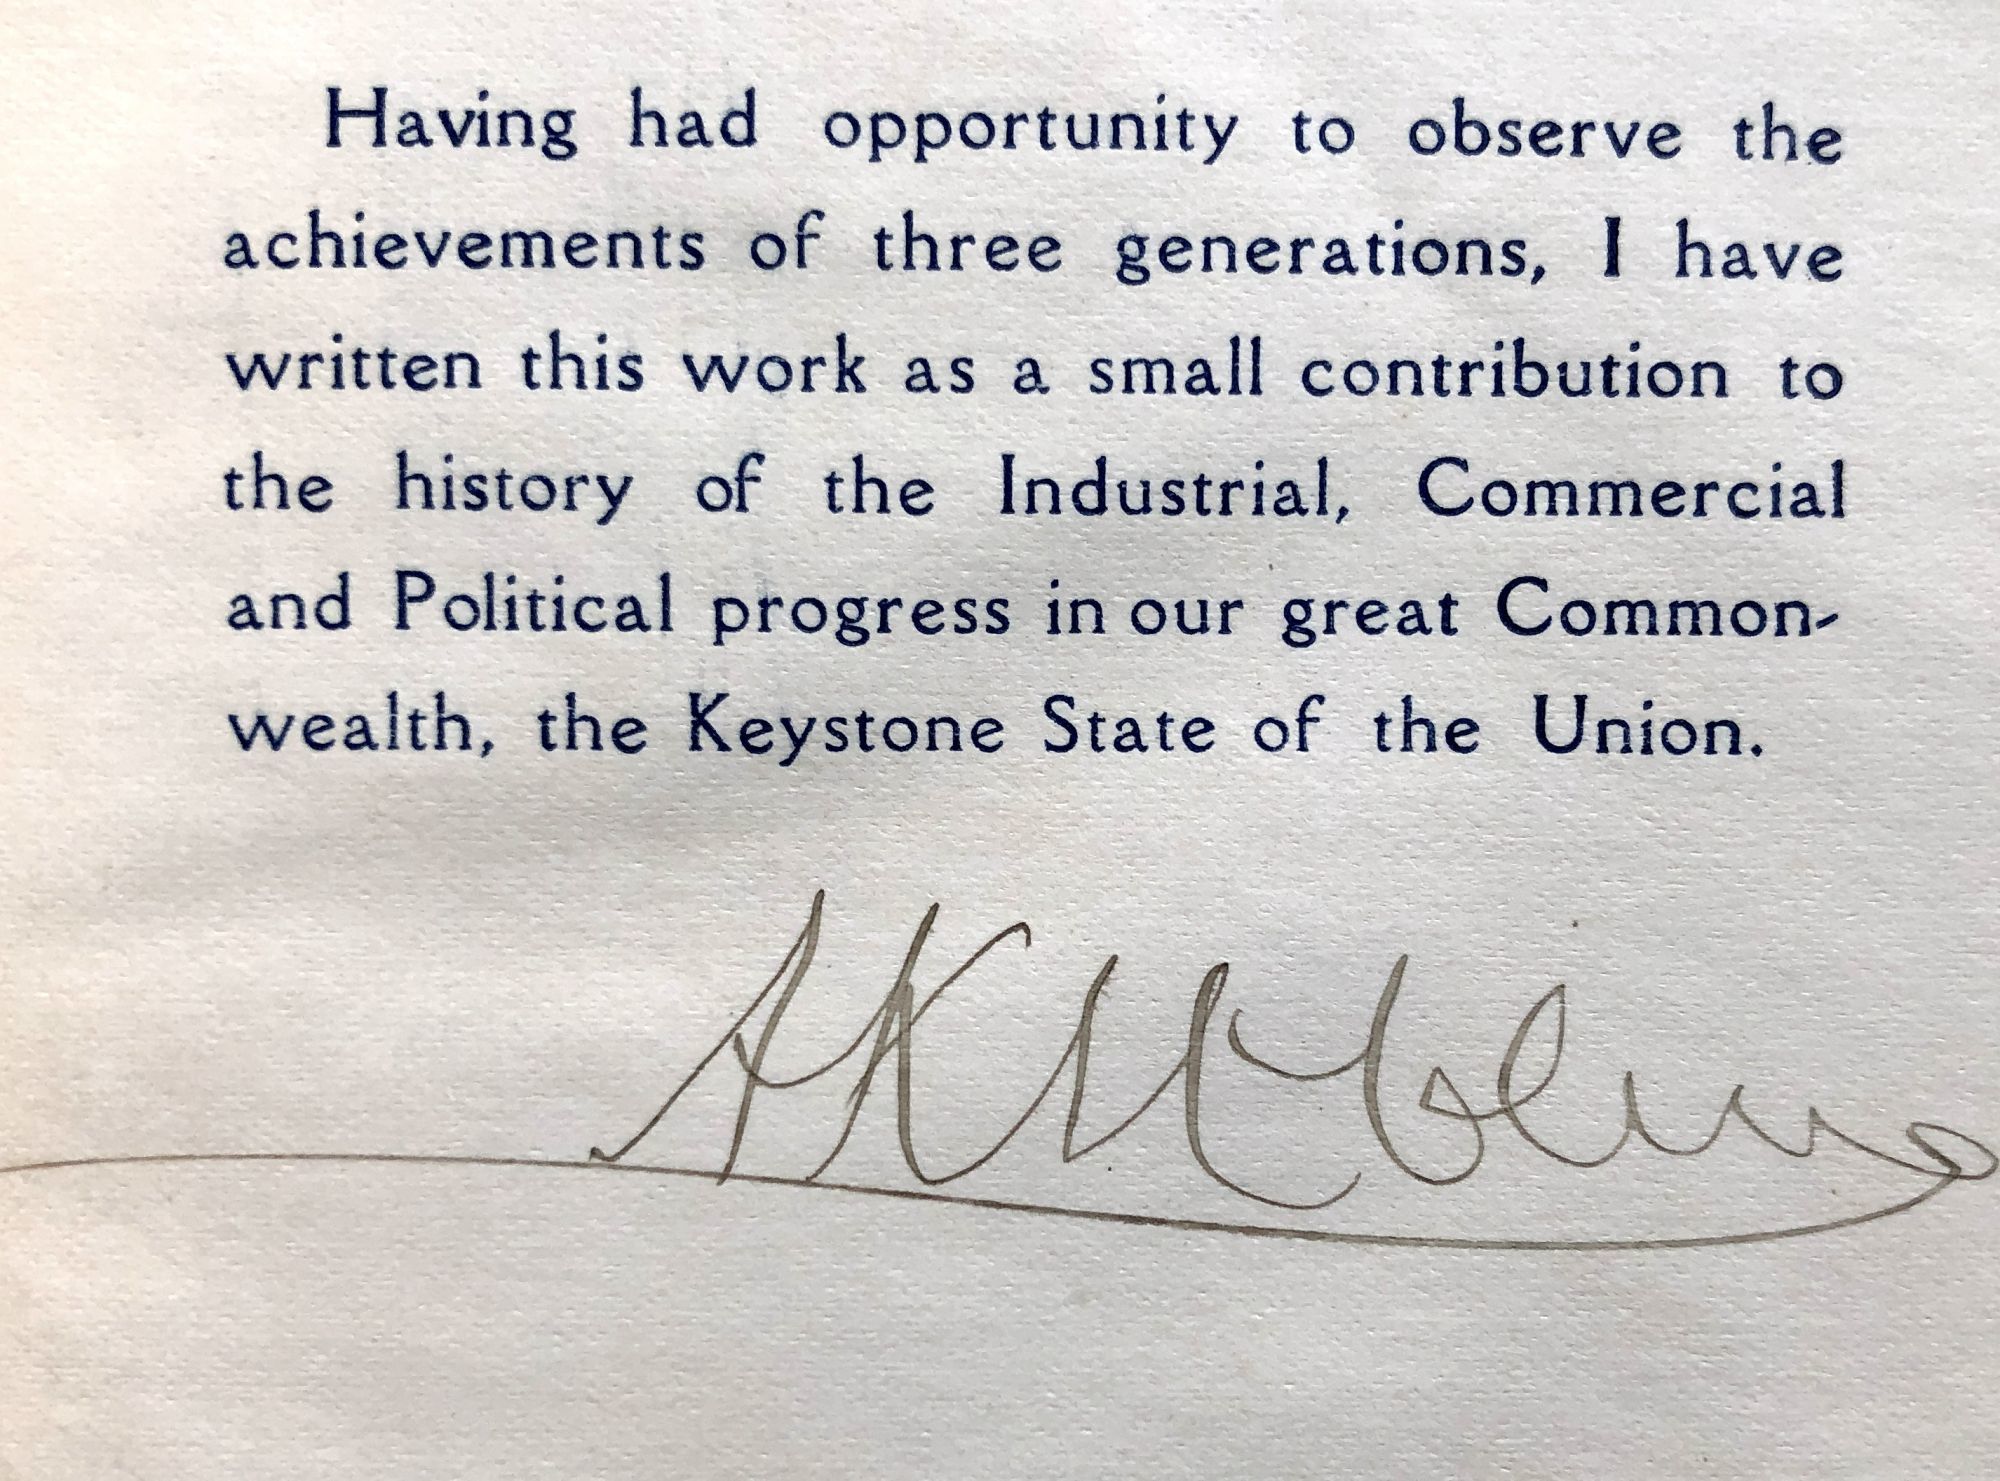 Having had opportunity to observe the
achievements of three generations, I have
written this work as a small contribution to
the history of the Industrial, Commercial
and Political progress in our great Common-
wealth, the Keystone State of the Union.
A K McClure